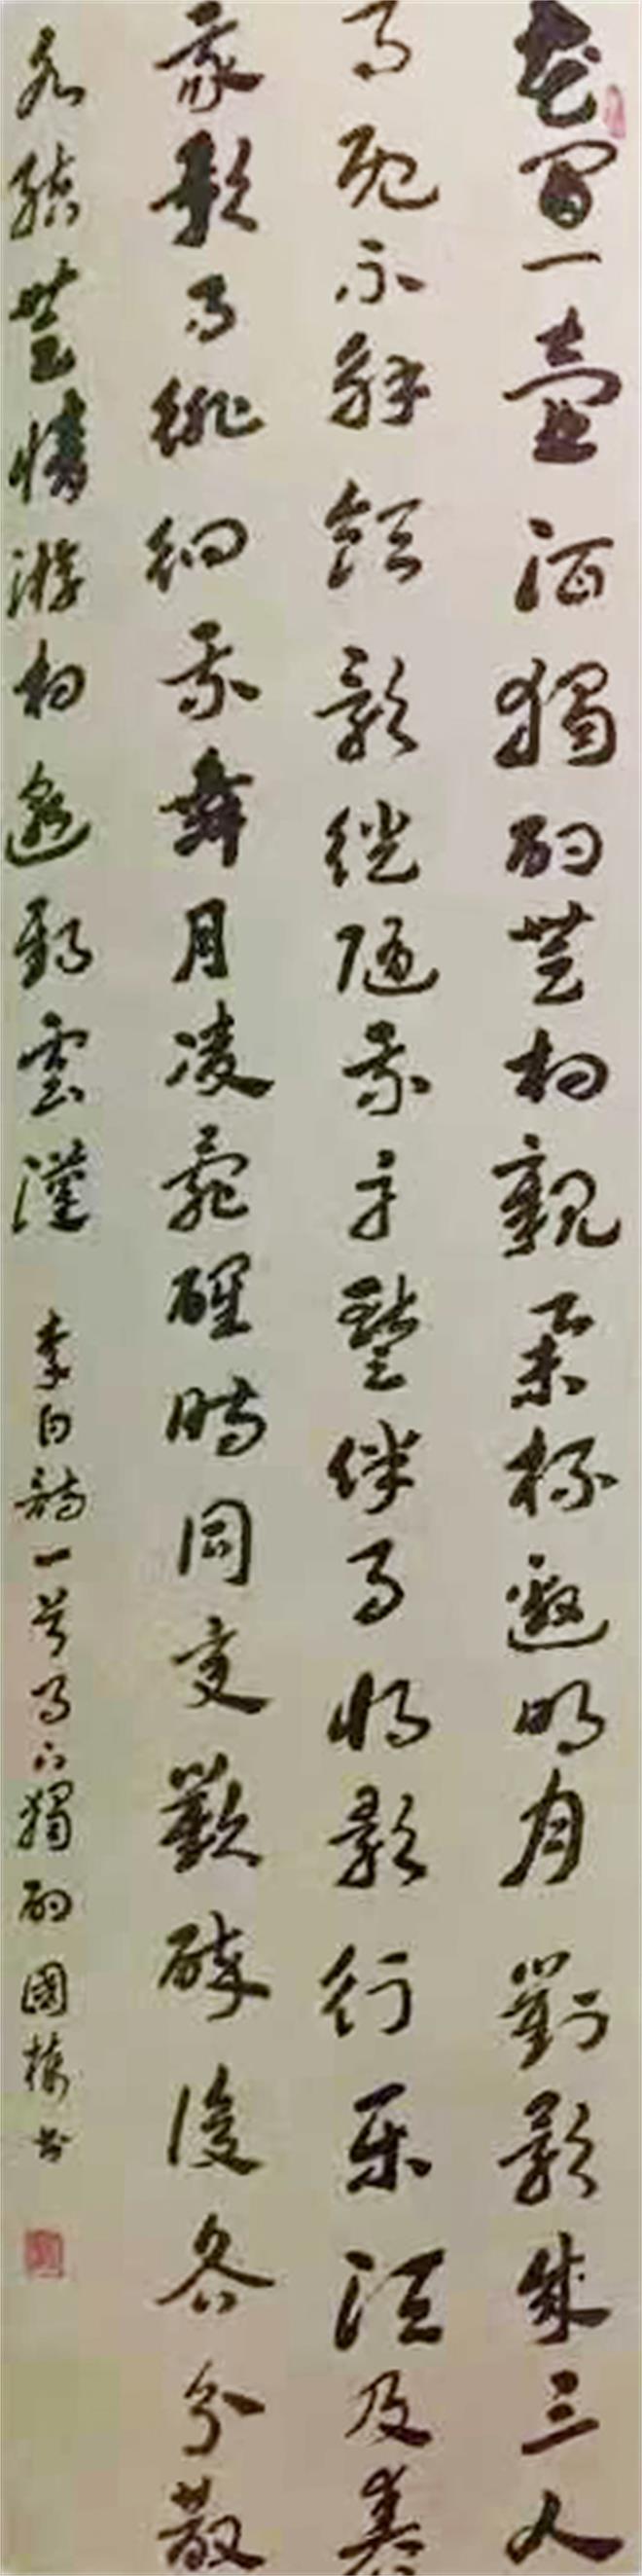 花間一壺酒獨酌無相親舉杯邀明月對影成三人
月既不解飲影徒隨我身暫伴月將影行樂須及春
我歌月徘徊我舞月凌亂醒時同交歡醉後各分散
永結無情游相邈期雲漢
李白詩一首月下獨酌國書